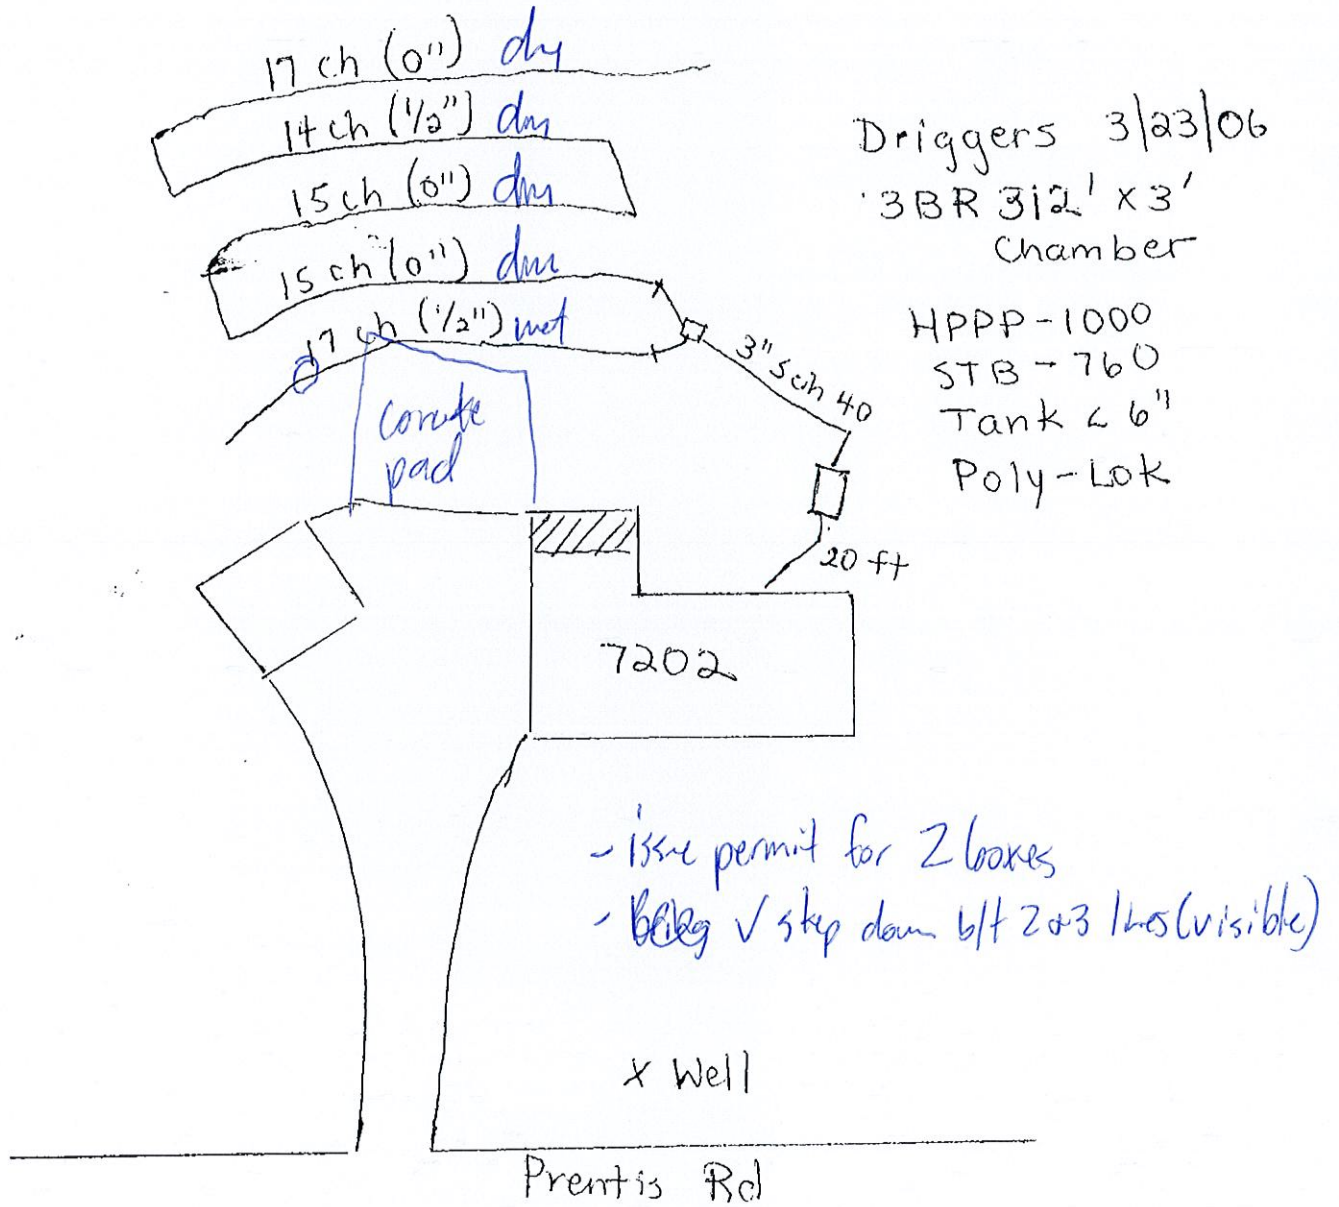 17 ch (0") dry
14 ch (1/2") dry
15 ch (0") dry
15 ch (0") dry
17 ch (1/2") wet
Driggers 3/23/06
3BR 312' x 3'
Chamber
HPPP-1000
STB-760
Tank < 6"
Poly-Lok
3" sch 40
20 ft
concrete
pad
7202
- issue permit for 2 boxes
- √ step down b/t 2 & 3 lines (visible)
x Well
Prentis Rd